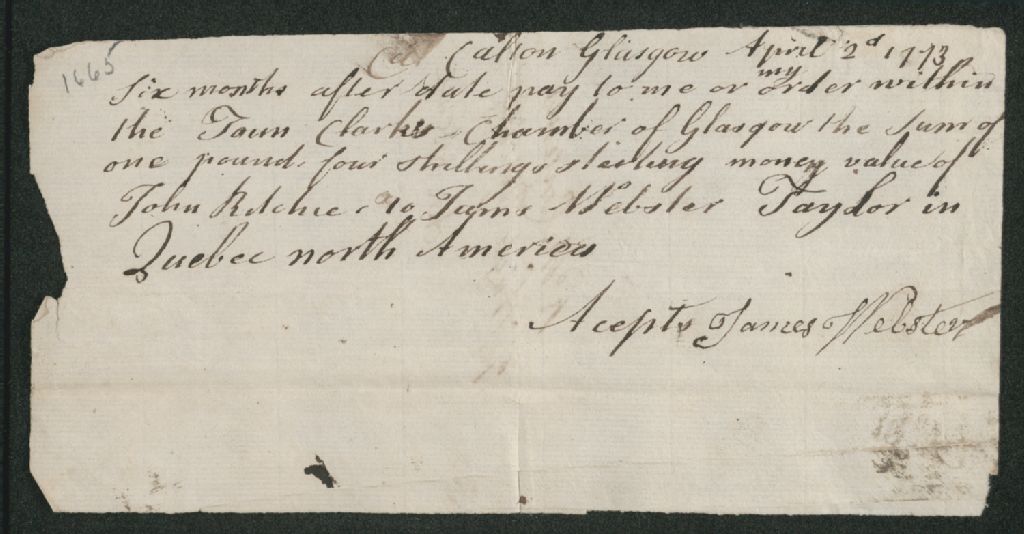 1665
Ca Calton Glasgow April 2d 1773
Six months after date pay to me or my order within
the Toun Clarks Chamber of Glasgow the Sum of
one pound four shillings sterling money value of
John Ritchie to Jams Webster Taylor in
Quebec north America
Acepts James Webster